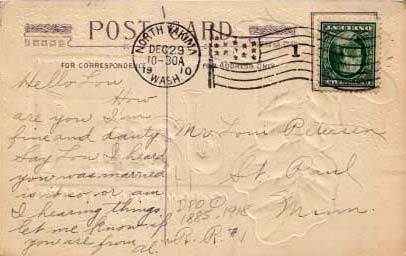 POST CARD
NORTH YAKIMA
DEC 29
10-30A
19 10
WASH.
1
FOR CORRESPONDENCE
FOR ADDRESS ONLY
Hello Lou
How
are you I'm
fine and dandy
Say Lou I heard
you was married
is it so or am
I hearing things
let me know if
you are from
Al.
Mr Loui Petersen
St. Paul
Minn.
R.R. #1
DPO
1885-1918